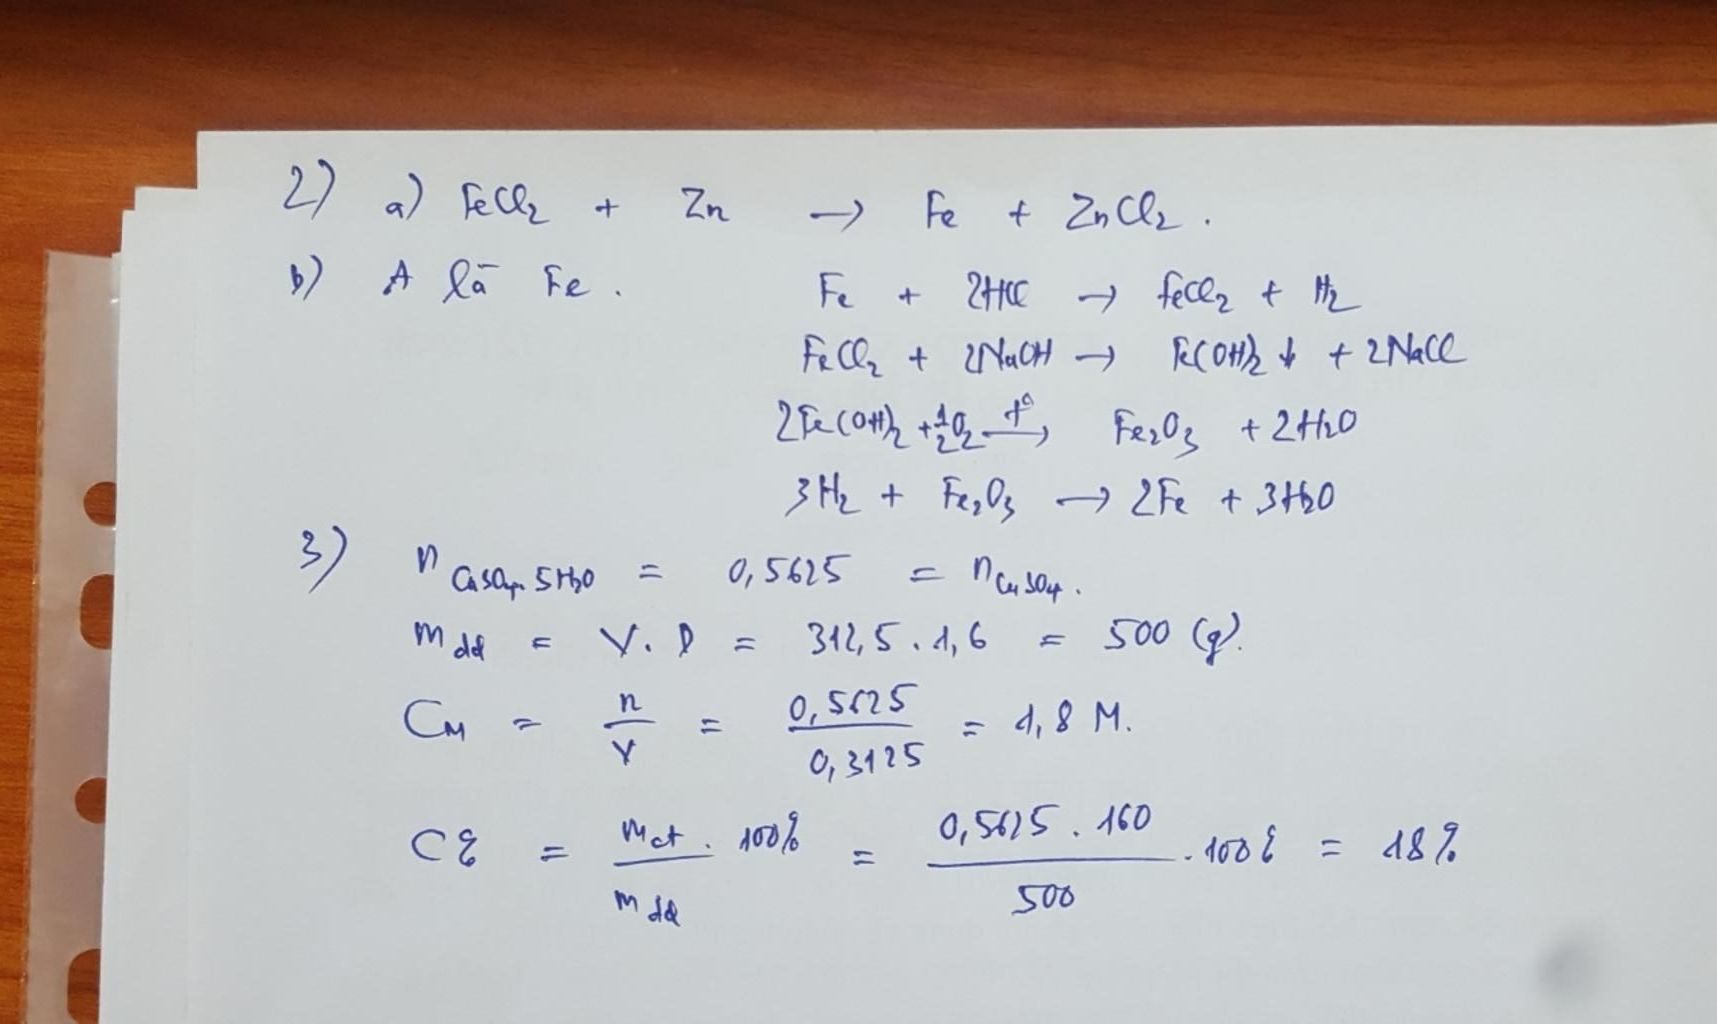 2) a) FeCl₂ + Zn → Fe + ZnCl₂.
b) A là Fe. Fe + 2HCl → FeCl₂ + H₂
FeCl₂ + 2NaOH → Fe(OH)₂ ↓ + 2NaCl
2Fe(OH)₂ + 1/2 O₂ –t°→ Fe₂O₃ + 2H₂O
3H₂ + Fe₂O₃ → 2Fe + 3H₂O
3) n CuSO₄.5H₂O = 0,5625 = n CuSO₄.
m dd = V.D = 312,5 . 1,6 = 500 (g).
C_M = n/V = 0,5625/0,3125 = 1,8 M.
C% = mct . 100% / m dd = 0,5625 . 160 / 500 . 100% = 18%